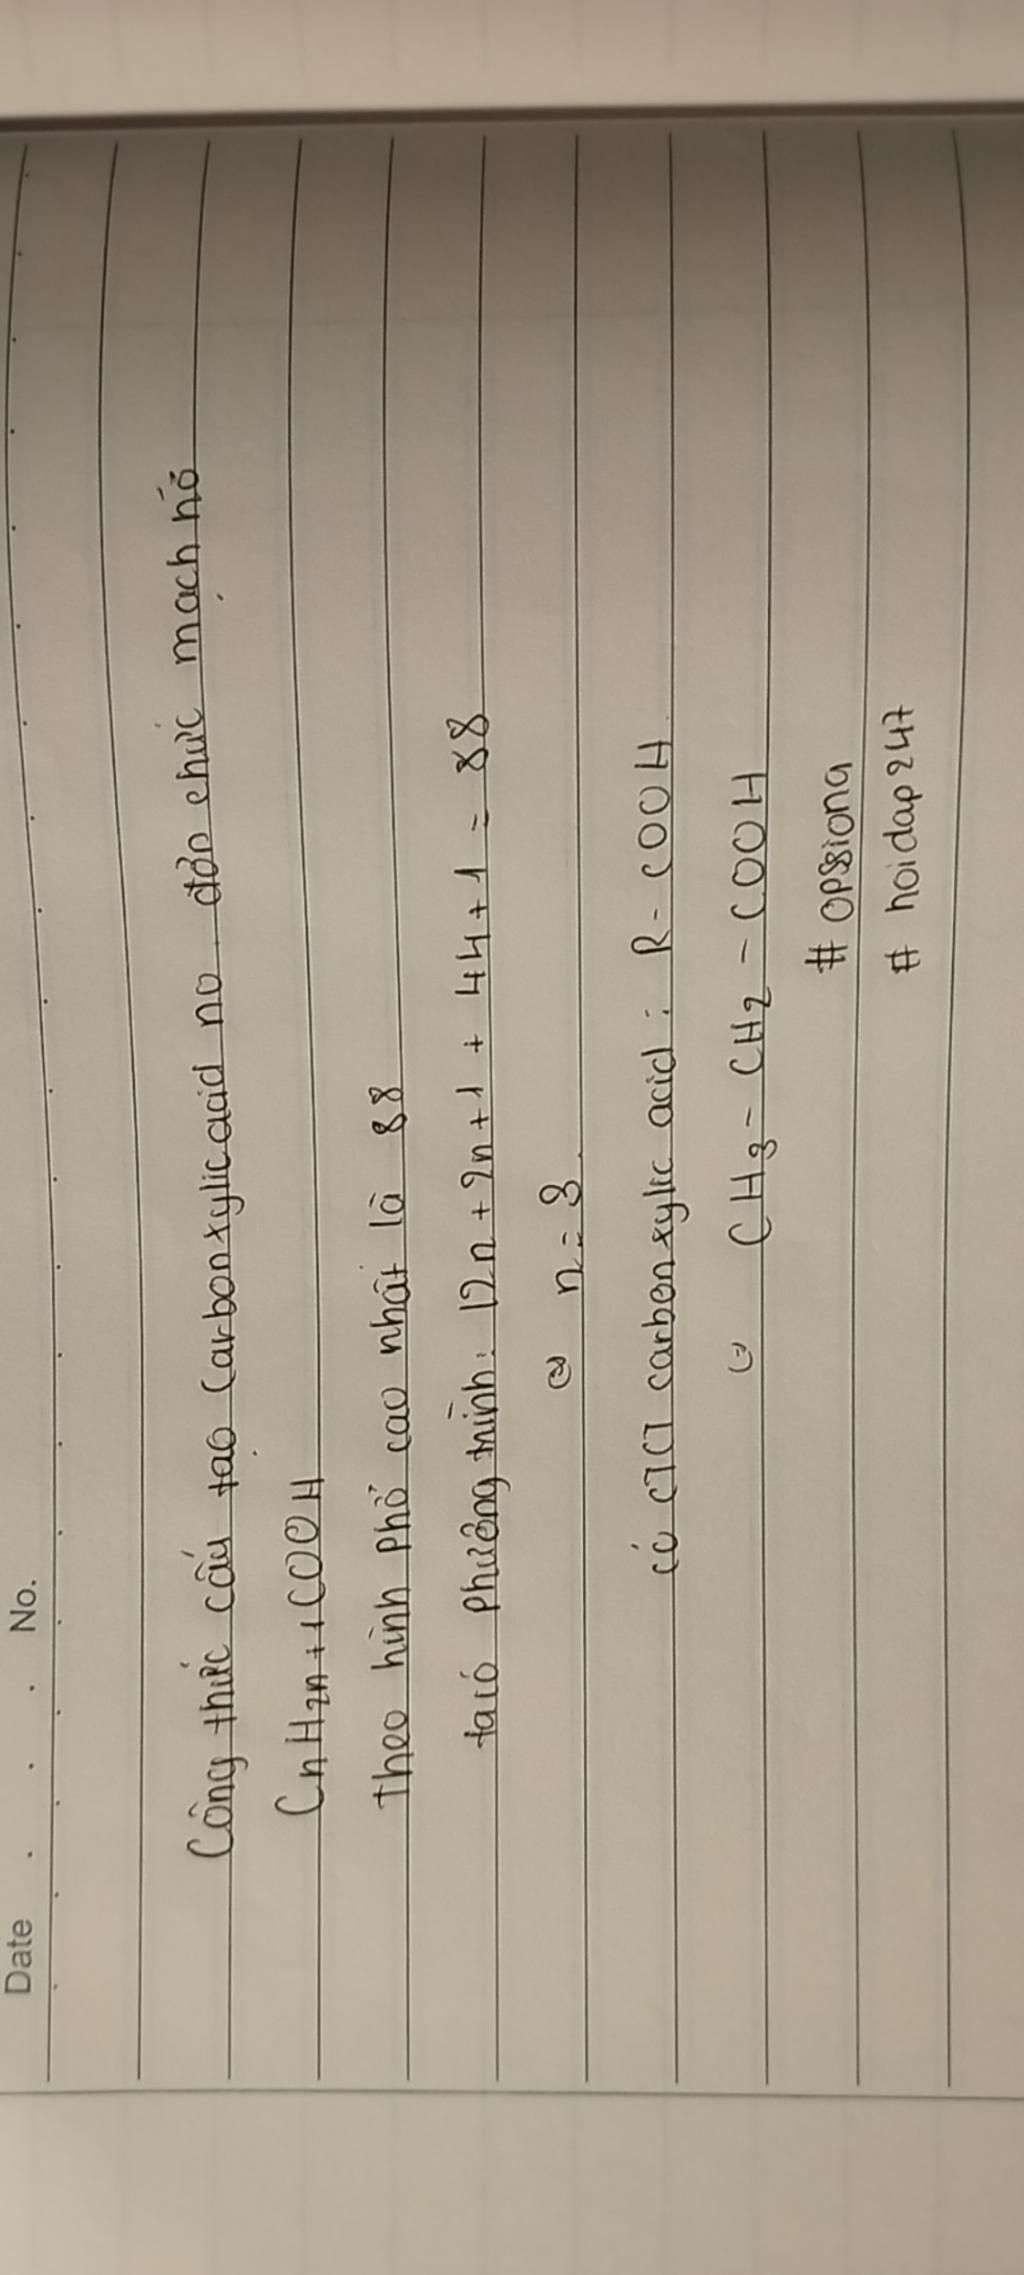 Date No.
Công thức cấu tạo Carbonxylic acid no đơn chức mạch hở
CnH2n+1COOH
Theo hình phổ cao nhất là 88
ta có phương trình: 12n + 2n + 1 + 44 + 1 = 88
(=) n = 3.
có CTCT carbonxylic acid : R - COOH
(=) CH3 - CH2 - COOH
# opsiona
# hoidap247